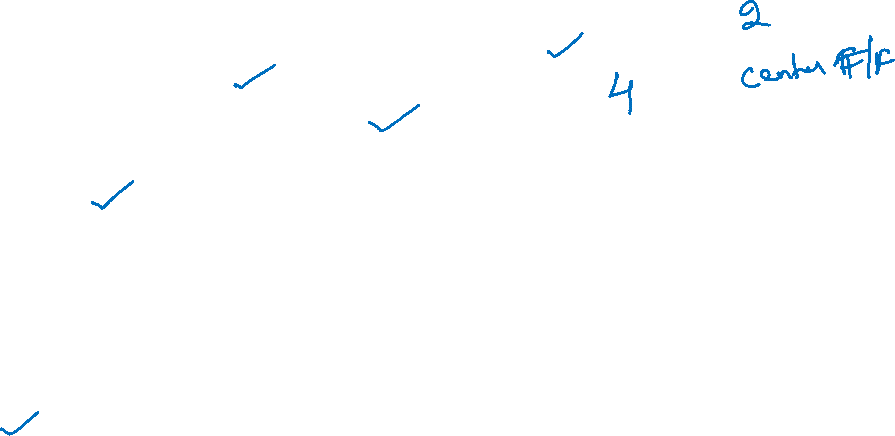 2
center F/F
4